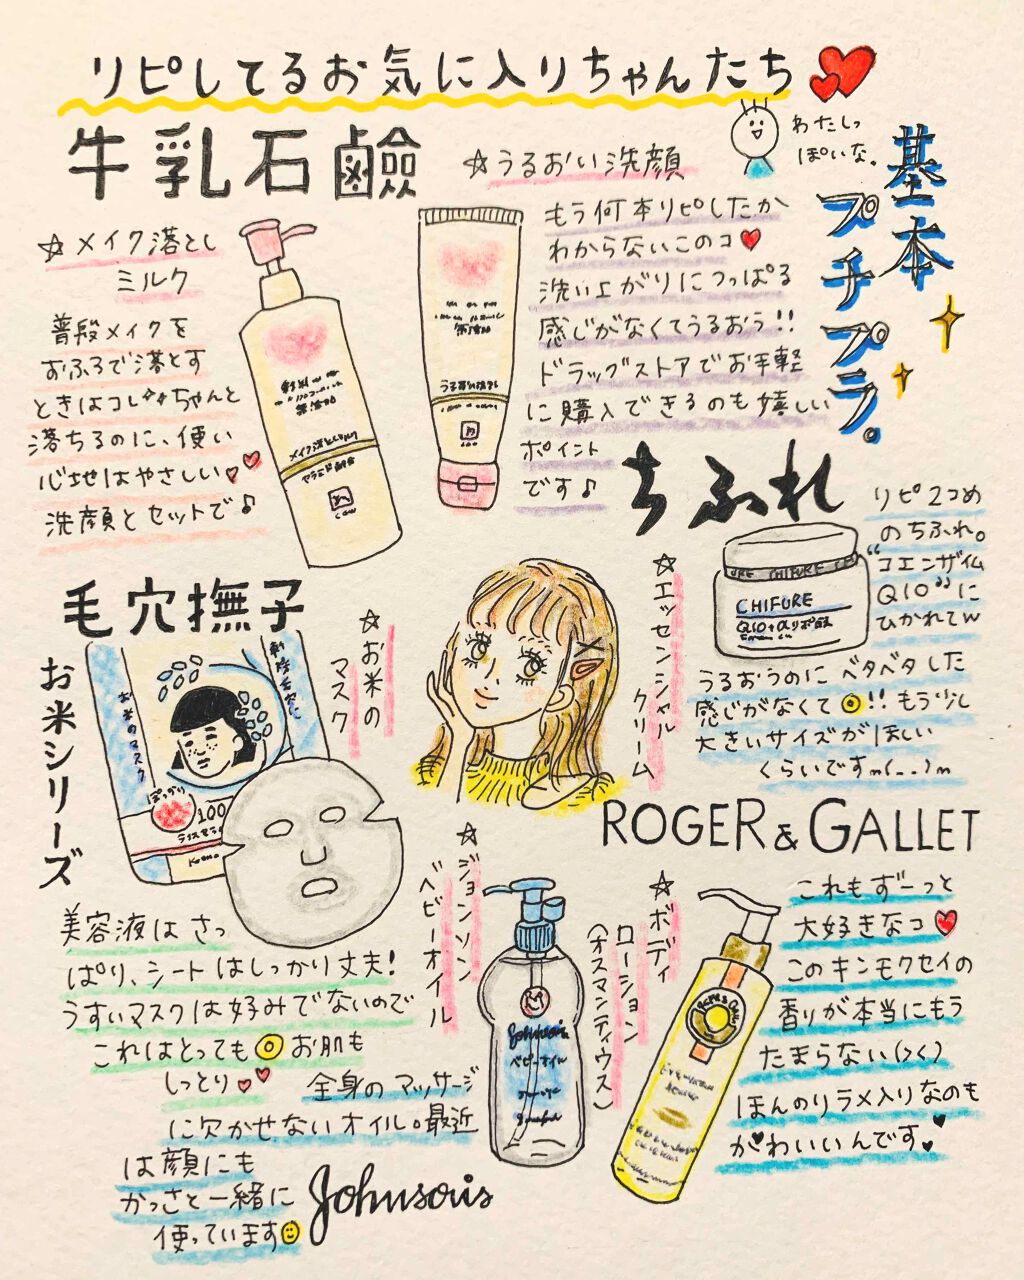 リピしてるお気に入りちゃんたち
わたしっ
ぽいな。
基本
プチプラ。
牛乳石鹸
☆メイク落とし
ミルク
普段メイクを
おふろで落とす
ときはコレ♡♡ちゃんと
落ちるのに、使い
心地はやさしい♡♡
洗顔とセットで♪
無添加
メイク落としミルク
☆うるおい洗顔
もう何本リピしたか
わからないこのコ♥
洗い上がりにつっぱる
感じがなくてうるおう!!
ドラッグストアでお手軽
に購入できるのも嬉しい
ポイント
です♪
無添加
うるおい洗顔
ちふれ
リピ2コめ
のちふれ。
“コエンザイム
Q10”に
ひかれてw
☆エッセンシャル
クリーム
CHIFURE
CHIFURE
うるおうのにベタベタした
感じがなくて◎!!もう少し
大きいサイズがほしい
くらいですm(__)m
毛穴撫子
お米シリーズ
☆お米の
マスク
お米のマスク
100
美容液はさっ
ぱり、シートはしっかり丈夫!
うすいマスクは好みでないので
これはとっても◎お肌も
しっとり♡♡
☆ジョンソン
ベビーオイル
Johnson's
ベビーオイル
全身のマッサージ
に欠かせないオイル。最近
は顔にも
かっさと一緒に
使っています
Johnson's
ROGER & GALLET
☆ボディ
ローション
(オスマンティウス)
これもずーっと
大好きなコ♥
このキンモクセイの
香りが本当にもう
たまらない(><)
ほんのりラメ入りなのも
かわいいんです♥♥